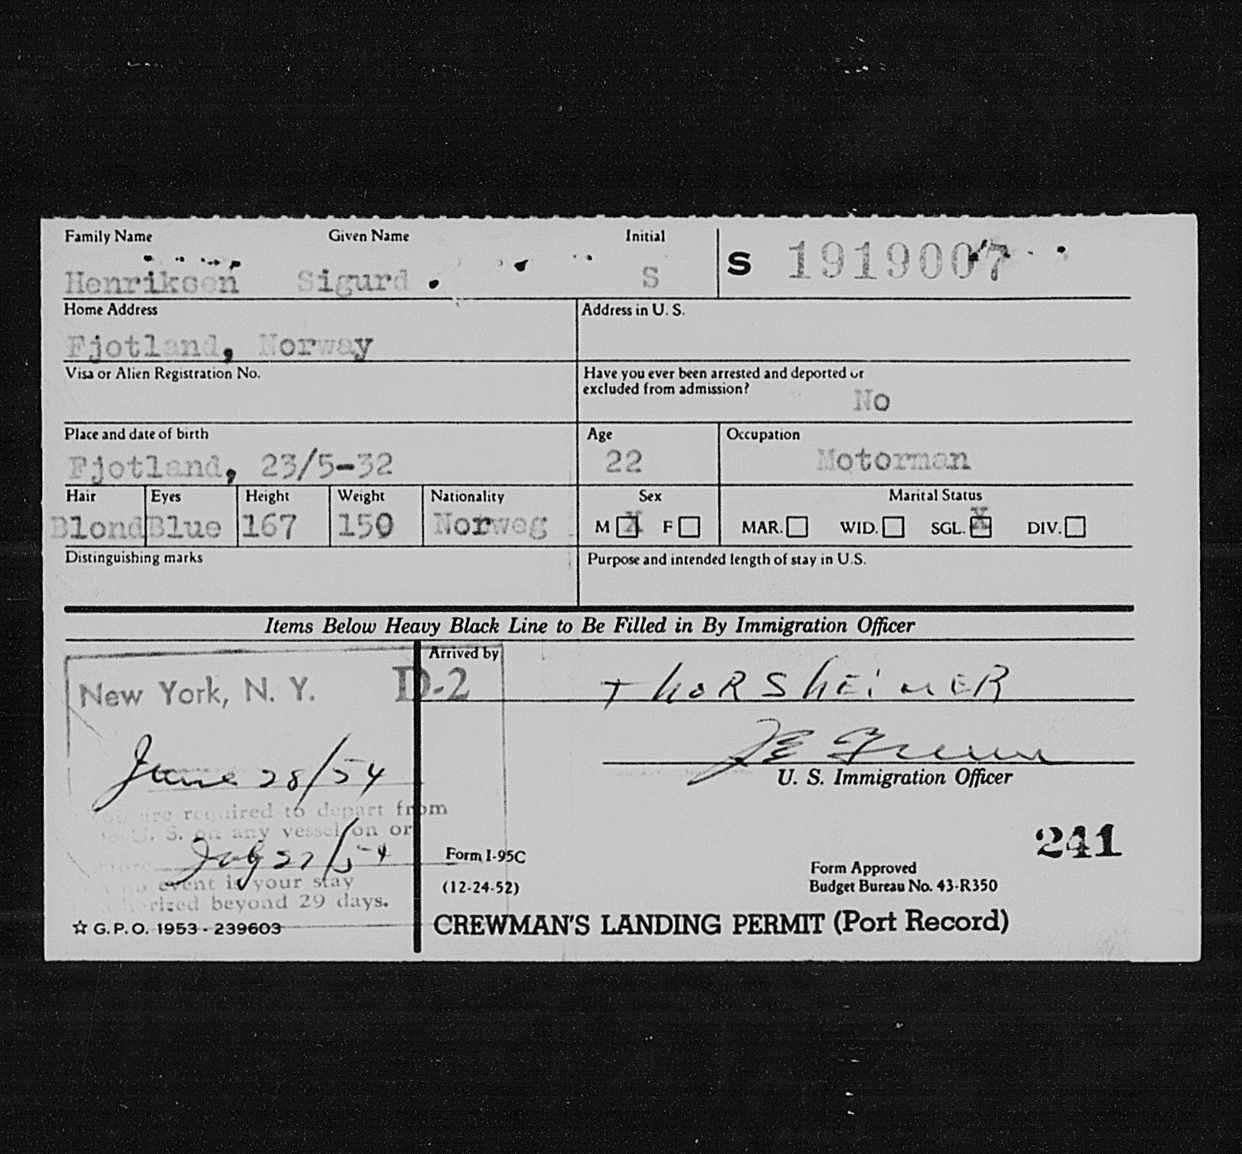 Family Name Given Name Initial
Henriksen Sigurd. S S 1919007
Home Address Address in U. S.
Fjotland, Norway
Visa or Alien Registration No. Have you ever been arrested and deported or
excluded from admission?
No
Place and date of birth Age Occupation
Fjotland, 23/5-32 22 Motorman
Hair Eyes Height Weight Nationality Sex Marital Status
Blond Blue 167 150 Norweg M X F MAR. WID. SGL. X DIV.
Distinguishing marks Purpose and intended length of stay in U.S.
Items Below Heavy Black Line to Be Filled in By Immigration Officer
Arrived by
New York, N. Y. D-2 THORSHEiMER
June 28/54
U. S. Immigration Officer
are required to depart from
U. S. on any vessel on or
July 27/54
event is your stay
beyond 29 days.
241
Form I-95C Form Approved
(12-24-52) Budget Bureau No. 43-R350
☆ G.P.O. 1953-239603 CREWMAN'S LANDING PERMIT (Port Record)